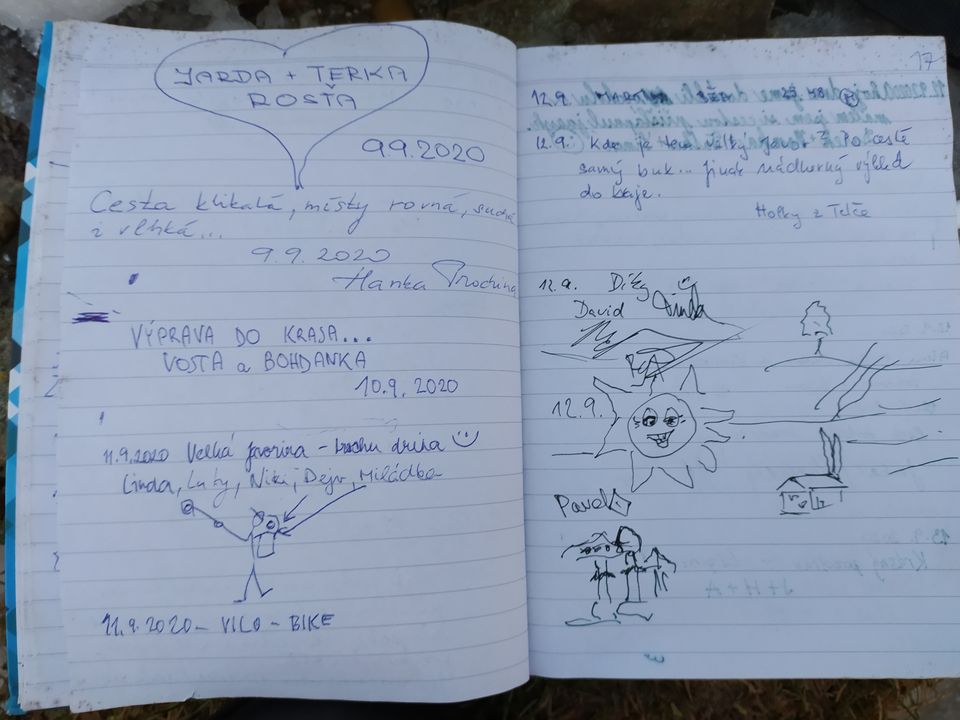 JARDA + TERKA
ROSŤA
9.9.2020
Cesta klikatá, místy rovná, suchá
i vlhká...
9.9.2020
Hanka
VÝPRAVA DO KRASA...
VOSTA a BOHDANKA
10.9.2020
11.9.2020 Velká javorina - trochu drina
Linda, Luty, Niki, Dejv, Miládba
11.9.2020 - VILO - BIKE
17
12.9.
12.9. Kde je ten velký javor? Po cestě
samý buk... jinak nádherný výhled
do kraje.
Holky z Telče
12.9. Díky
David Linda
12.9.
Pavel